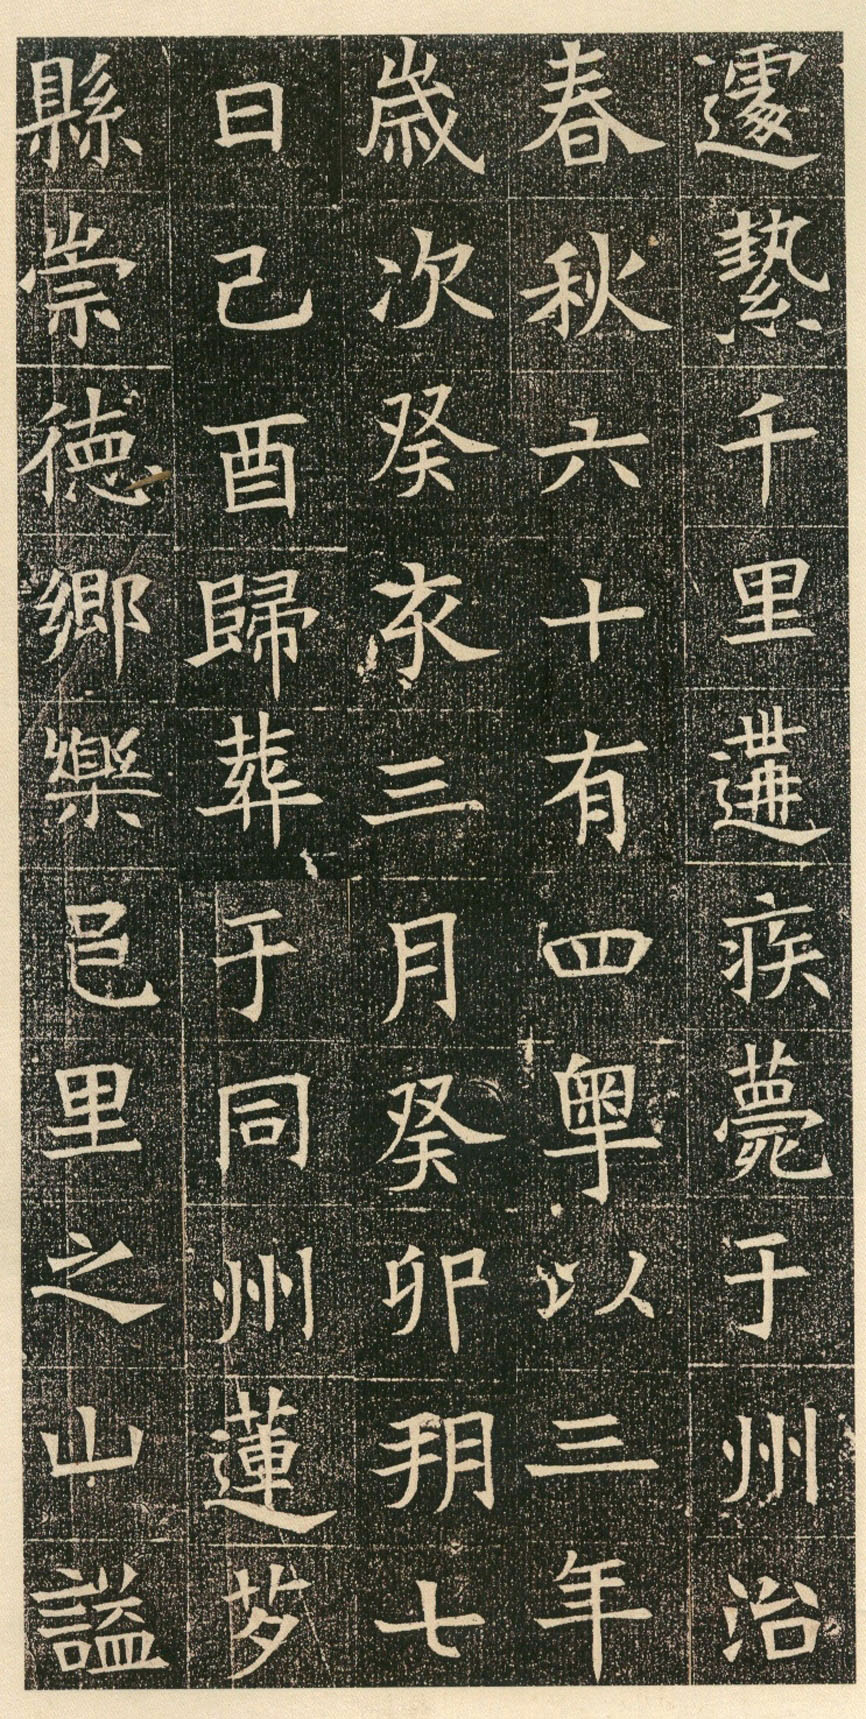 遽縶千里遘疾薨于州治
春秋六十有四粤以三年
歲次癸亥三月癸卯朔七
日己酉歸葬于同州蓮芍
縣崇德鄉樂邑里之山諡